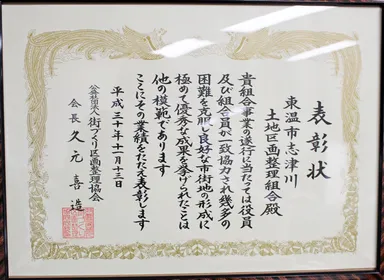 表彰状
東温市志津川
土地区画整理組合殿
貴組合事業の遂行に当たっては役員
及び組合員が一致協力され幾多の
困難を克服し良好な市街地の形成に
極めて優秀な成果を挙げられたことは
他の模範であります
ここにその業績をたたえ表彰します
平成三十年十一月十三日
公益社団法人街づくり区画整理協会
会長 久元喜造